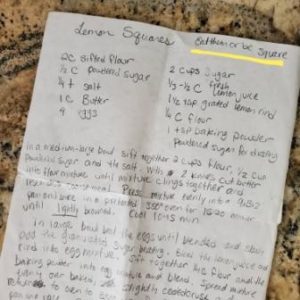 Lemon Squares
Eat them or be Square
2C sifted flour
½ C powdered sugar
¼ t salt
1 C Butter
4 eggs
2 cups Sugar
⅓-½ C fresh Lemon juice
1½ tsp grated lemon rind
¼ C flour
1 tsp baking powder
powdered sugar for dusting
In a medium-large bowl sift together 2 cups flour, ½ cup
powdered sugar and the salt. With 2 knives cut butter
into flour mixture until mixture clings together and
Press mixture evenly into a
pan and bake in a preheated 350° oven for 15-20 minutes
until lightly browned. Cool 10-15 min
In a large bowl beat the eggs until blended and
add the granulated sugar beating. Blend the lemon juice and
rind into egg mixture. Sift together ¼ C flour and the
baking powder into egg mixture and blend. Spread mixture
over baked
return to oven